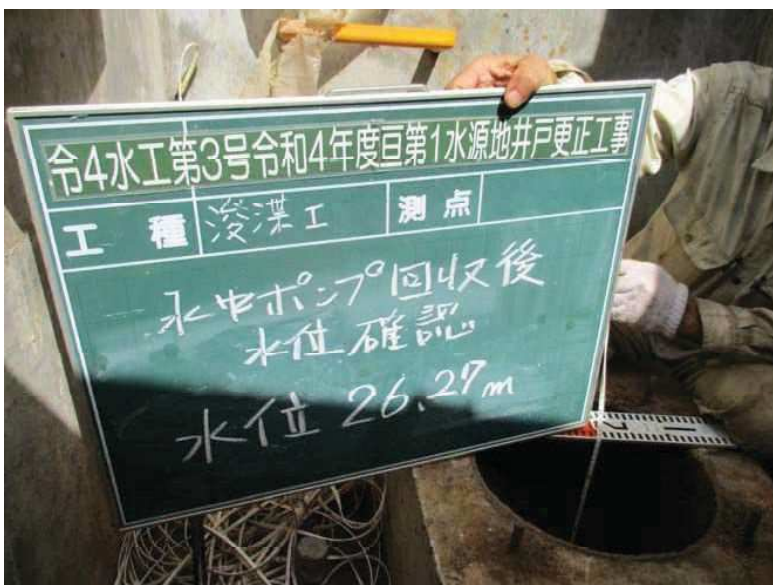 令4水工第3号令和4年度亘第1水源地井戸更正工事
工種 浚渫工 測点
水中ポンプ回収後
水位確認
水位 26.27m